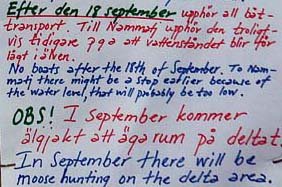 Efter den 18 september upphör all båt-
transport. Till Nammatj upphör den troligt-
vis tidigare pga att vattenståndet blir för
lågt i älven.
No boats after the 18th of September. To Nam-
matj there might be a stop earlier because of
the water level, that will probably be too low.
OBS! I september kommer
älgjakt att äga rum på deltat.
In September there will be
moose hunting on the delta area.